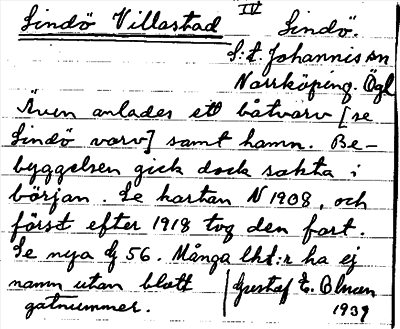 Lindö Villastad IV Lindö.
S:t Johannis sn
Norrköping. Ögl
Även anlades ett båtvarv [se
Lindö varv] samt hamn. Be-
byggelsen gick dock sakta i
början. Se kartan N 1908, och
först efter 1918 tog den fart.
Se nya G 56. Många lht:r ha ej
namn utan blott
gatnummer.
Gustaf E. Olson
1939